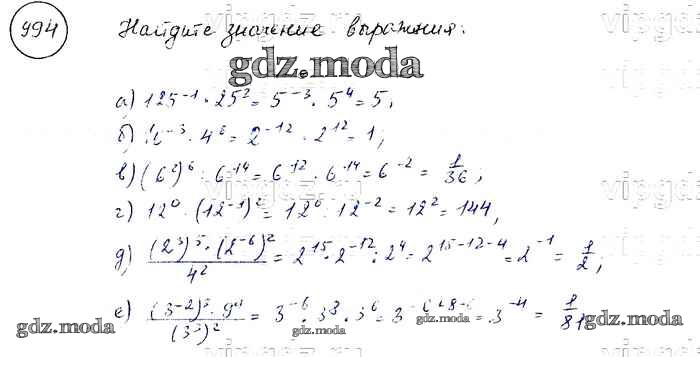 994 Найдите значение выражния:
gdz.moda
а) 125⁻¹ · 25² = 5⁻³ · 5⁴ = 5,
б) ⁻³ · 4⁶ = 2⁻¹² · 2¹² = 1;
в) (6²)⁶ : 6¹⁴ = 6¹² · 6⁻¹⁴ = 6⁻² = 1/36;
г) 12⁰ · (12⁻¹)² = 12⁰ · 12⁻² = 12² = 144,
д) (2³)⁵ · (2⁻⁶)² / 4² = 2¹⁵ · 2⁻¹² : 2⁴ = 2¹⁵⁻¹²⁻⁴ = 2⁻¹ = 1/2;
е) (3⁻²)³ · 9⁴ / (3³)² = 3⁻⁶ · 3⁸ · 3⁶ = 3⁻⁶⁺⁸⁻⁶ = 3⁻⁴ = 1/81
gdz.moda gdz.moda gdz.moda gdz.moda